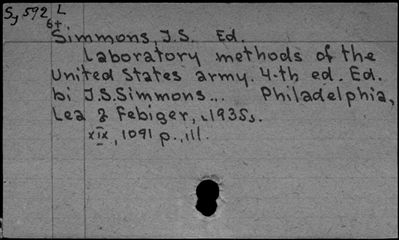 Sy 592 L
6+.
Simmons, J.S. Ed.
Laboratory methods of the
United States army. 4-th ed. Ed.
bi J.S.Simmons... Philadelphia,
Lea & Febiger, 1935.
XIX, 1091 p., ill.